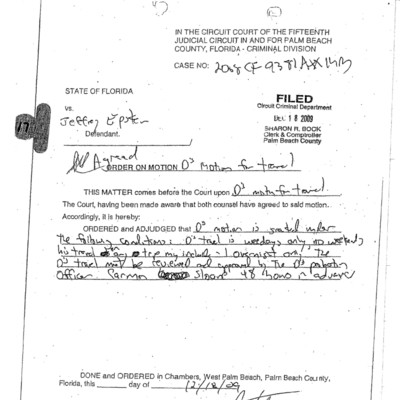 IN THE CIRCUIT COURT OF THE FIFTEENTH
JUDICIAL CIRCUIT IN AND FOR PALM BEACH
COUNTY, FLORIDA - CRIMINAL DIVISION
CASE NO:
STATE OF FLORIDA
vs.
Jeffrey Epstein
Defendant.
17
FILED
Circuit Criminal Department
DEC 18 2009
SHARON R. BOCK
Clerk & Comptroller
Palm Beach County
Agreed
ORDER ON MOTION D's Motion for travel
THIS MATTER comes before the Court upon D's motion for travel.
The Court, having been made aware that both counsel have agreed to said motion.
Accordingly, it is hereby:
ORDERED and ADJUDGED that D's motion is granted under
the following conditions: D's travel is weekdays only no weekends,
his travel any may include 1 overnight only. The
D's travel must be reviewed and approved by the D's probation
Officer Carmen Sloan 48 hours in advance
DONE and ORDERED in Chambers, West Palm Beach, Palm Beach County,
Florida, this day of 12/18/09